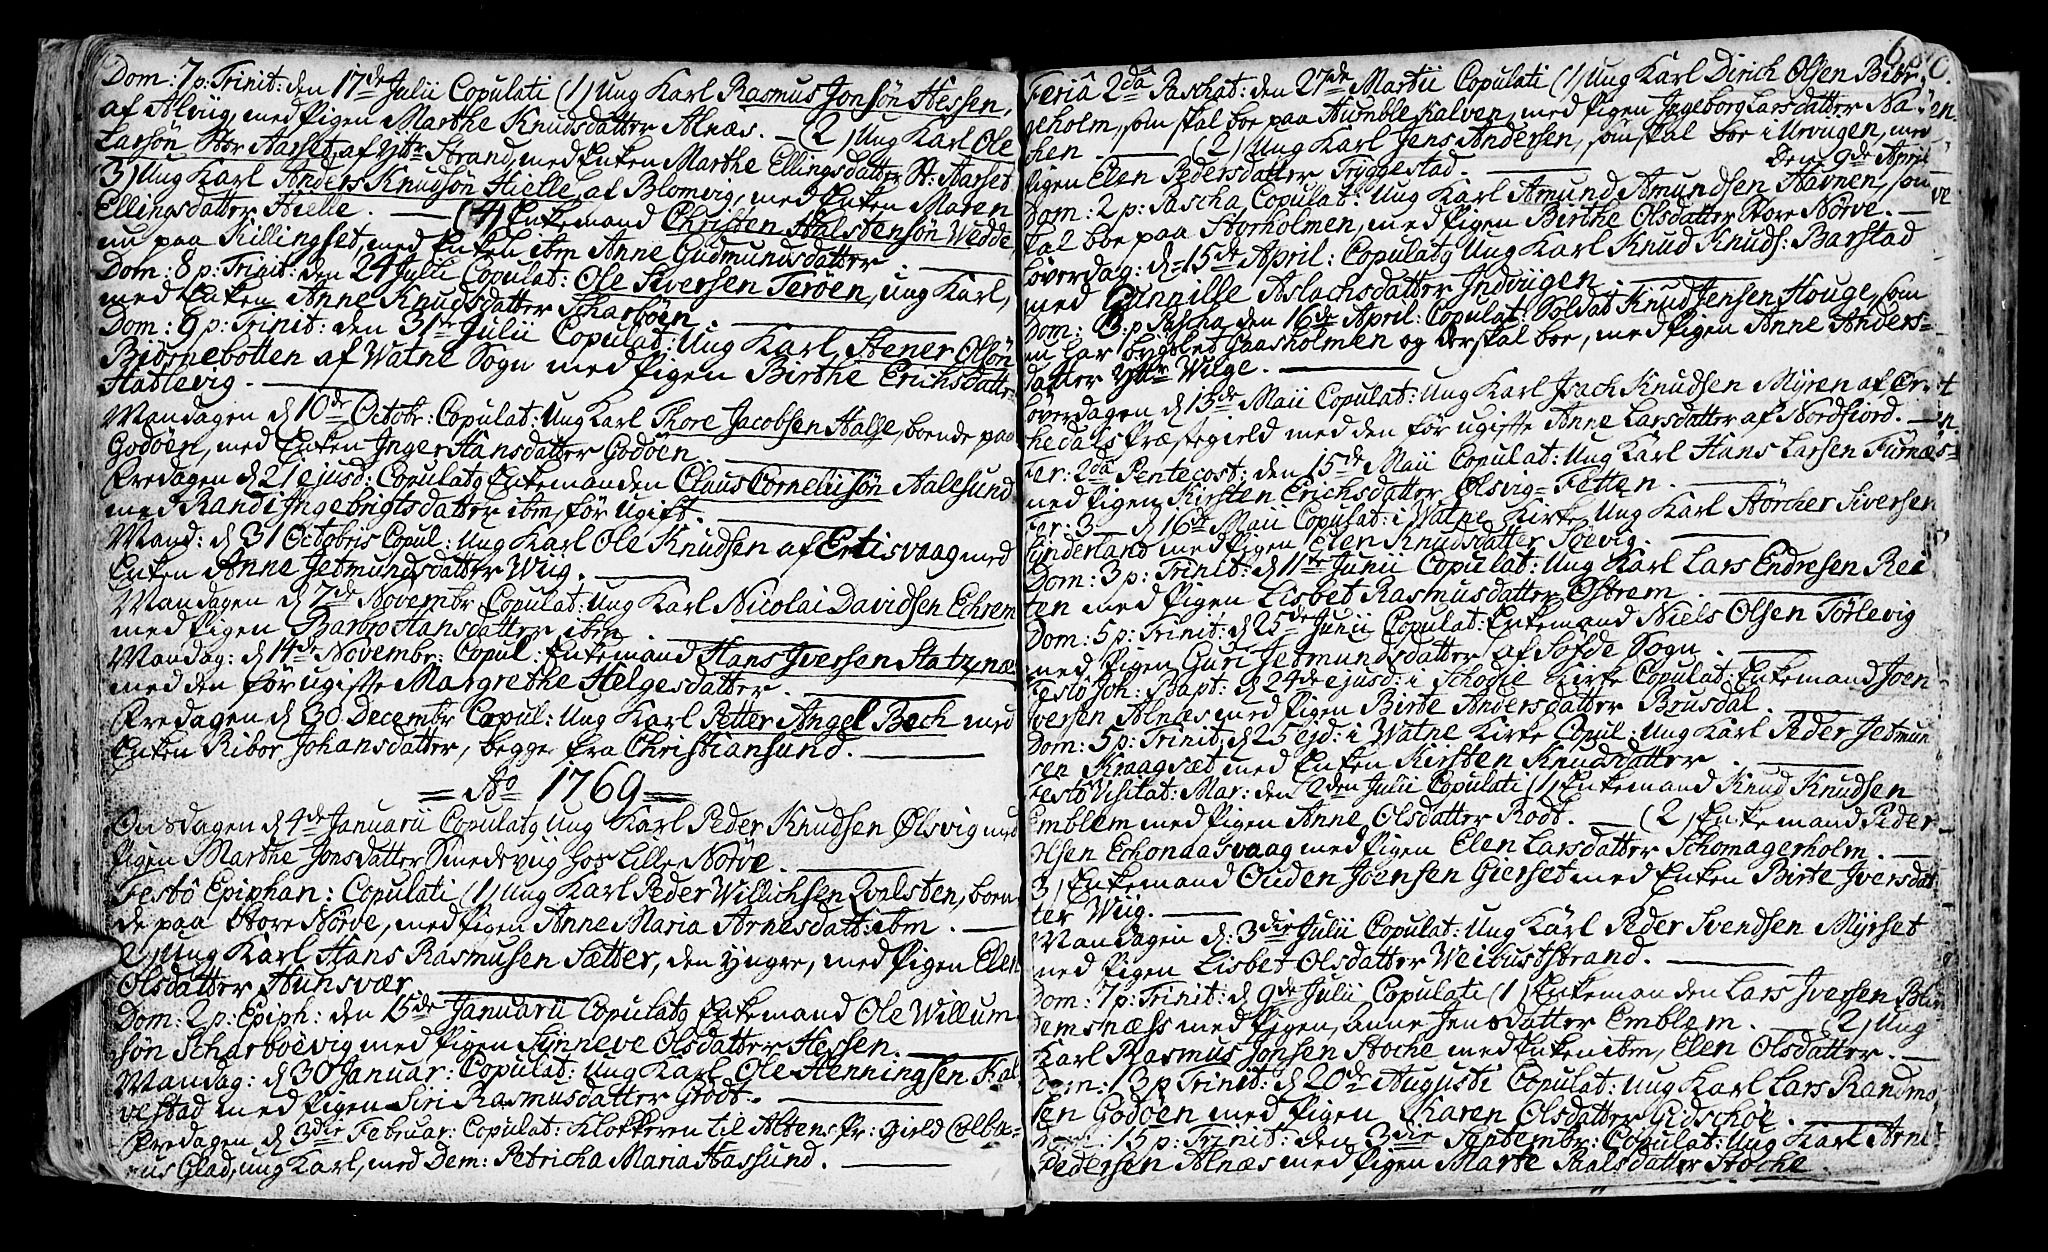 Dom: 7 p: Trinit: den 17de Julii Copulati (1) Ung Karl Rasmus Jonsøn Hessen,
af Alvig, med Pigen Marthe Knudsdatter Alnæs. — (2) Ung Karl Ole
Larsøn Stor Aarset, af Yttr Strand, med Enken Marthe Ellingsdatter St: Aarset
3) Ung Karl Anders Knudsøn Hielle, af Blomvig, med Enken Maren
Ellingsdatter Hielle. — (4) Enkemand Christen Halstensøn Wedde,
nu paa Killingset, med Enken ibm Anne Gudmundsdatter.
Dom: 8 p: Trinit: den 24 Julii Copulat: Ole Siversen Terøen, ung Karl,
med Enken Anne Knudsdatter Scharbøen.
Dom: 9 p: Trinit: den 31te Julii Copulat: Ung Karl Stener Olsøn
Biørnebotten af Watne Sogn med Pigen Birthe Erichsdatter
Hablevig.
Mandagen d 10de Octobr: Copulat: Ung Karl Thore Jacobsen Halse, boende paa
Godøen, med Enken Inger Hansdatter Godøen.
Fredagen d 21 ejusd: Copulatg Enkemanden Claus Corneliisøn Aalesund
med Randi Ingebrigtsdatter ibm, før ugift.
Mand: d 31 Octobris Copul: Ung Karl Ole Knudsen af Ertisvaag med
Enken Anne Jetmundsdatter Wiig.
Mandagen d 7de Novembr Copulat: Ung Karl Nicolai Davidsen Echrem
med Pigen Barbro Hansdatter ibm.
Mandag: d 14de Novembr: Copul: Enkemand Hans Iversen Statznæ
med den før ugifte Margrethe Helgesdatter.
Fredagen d 30 Decembr Copul: Ung Karl Petter Angel Bech med
Enken Ribor Johansdatter, begge fra Christiansund.
= Ao 1769 =
Onsdagen d 4de Januarii Copulatg Ung Karl Peder Knudsen Ølsvig med
Pigen Marthe Jonsdatter Smedsviig hos Lille Nørve.
Festô Epiphan: Copulati (1) Ung Karl Peder Willichsen Qvalsten, boen-
de paa Store Nørve, med Pigen Anne Maria Arnesdatt: ibm.
2) Ung Karl Hans Rasmusen Sætter, den yngre, med Pigen Elen
Olsdatter Hunsvær.
Dom: 2 p: Epiph: den 15de Januarii Copulatg Enkemand Ole Willum-
søn Scharboevig med Pigen Synneve Olsdatter Hessen.
Mandag: d 30 Januar: Copulat: Ung Karl Ole Henningsen Kal-
vestad med Pigen Siri Rasmusdatter Grödt.
Fredagen d 3die Februar: Copulat: Klokkeren til Altens Pr: gield Colba-
nus Glad, ung Karl, med Dem: Petricha Maria Aasund.
Feriâ 2da Paschat: den 27de Martii Copulati (1) Ung Karl Dirich Olsen Bibr
geholm, som skal boe paa Humble Kalven, med Pigen Ingeborg Larsdatter Na
chen. — (2) Ung Karl Jens Andersen, som skal boe i Urvugen, med
Pigen Elen Pedersdatter Tryggestad. — Den 9de April
Dom: 2 p: Pascha Copulat: Ung Karl Amund Amundsen Havnen, som
skal boe paa Storholmen, med Pigen Birthe Olsdatter Store Nørve.
Löverdag: d 15de April: Copulatg Ung Karl Knud Knuds: Barstad
med Gunnille Aslachsdatter Indvigen.
Dom: 3 p Pascha den 16de April: Copulat: Soldat Knud Jensen Houge, som
har bygslet Gaasholmen og der skal boe, med Pigen Anne Anders-
datter Yttr Wilge.
Löverdagen d 13de Maii Copulat: Ung Karl Isach Knudsen Myren af Ør-
hedals Præstegield med den før ugifte Anne Larsdatter af Nordfiord.
Fer: 2da Pentecost: den 15de Maii Copulat: Ung Karl Hans Larsen Furnæs-
med Pigen Kirsten Erichsdatter Ølsvig-Fetten.
Fer: 3 — d 16de Maii Copulat: i Watne Kirke Ung Karl Störcher Siversen
Synderland med Pigen Elen Knudsdatter Söevig.
Dom: 3 p: Trinit: d 11te Junii Copulat: Ung Karl Lars Endresen Rei
ten med Pigen Lisbet Rasmusdatter Østrem.
Dom: 5 p: Trinit: d 25de Junii Copulat: Enkemand Niels Olsen Törlevig
med Pigen Guri Jetmundsdatter af Söfde Sogn.
Festô Joh: Bapt: d 24de ejusd: i Schodie Kirke Copulat: Enkemand Joen
Iversen Alnæs med Pigen Birte Andersdatter Brusdal.
Dom: 5 p: Trinit: d 25 ejd: i Watne Kirke Copul: Ung Karl Peder Jetmun
sen Kraagsæt med Enken Kirsten Knudsdatter.
Festô Visitat: Mar: den 2den Julii Copulati (1) Enkemand Knud Knudsen
Emblem med Pigen Anne Olsdatter Rödt. — (2) Enkemand Peder
Olsen Echonaasvaag med Pigen Elen Larsdatter Schomagerholm.
3) Enkemand Ouden Joensen Gierset med Enken Birte Iversdat-
ter Wiig.
Mandagen d: 3die Julii Copulat: Ung Karl Peder Svendsen Myrset
med Pigen Lisbet Olsdatter Weibuststrand.
Dom: 7 p: Trinit: d 9de Julii Copulati (1) Enkemanden Lars Iversen Blin
demsnæss med Pigen Anne Jensdatter Emblem. — 2) Ung
Karl Rasmus Jonsen Stoche med Enken ibm, Elen Olsdatter.
Dom: 13 p Trinit: d 20de Augusti Copulat: Ung Karl Lars Randmo
sen Godøen med Pigen Karen Olsdatter Gidschøe.
Dom: 15 p: Trinit: den 3die Septembr: Copulat: Ung Karl Arne
Pedersen Alnæs med Pigen Marte Palsdatter Stoche.